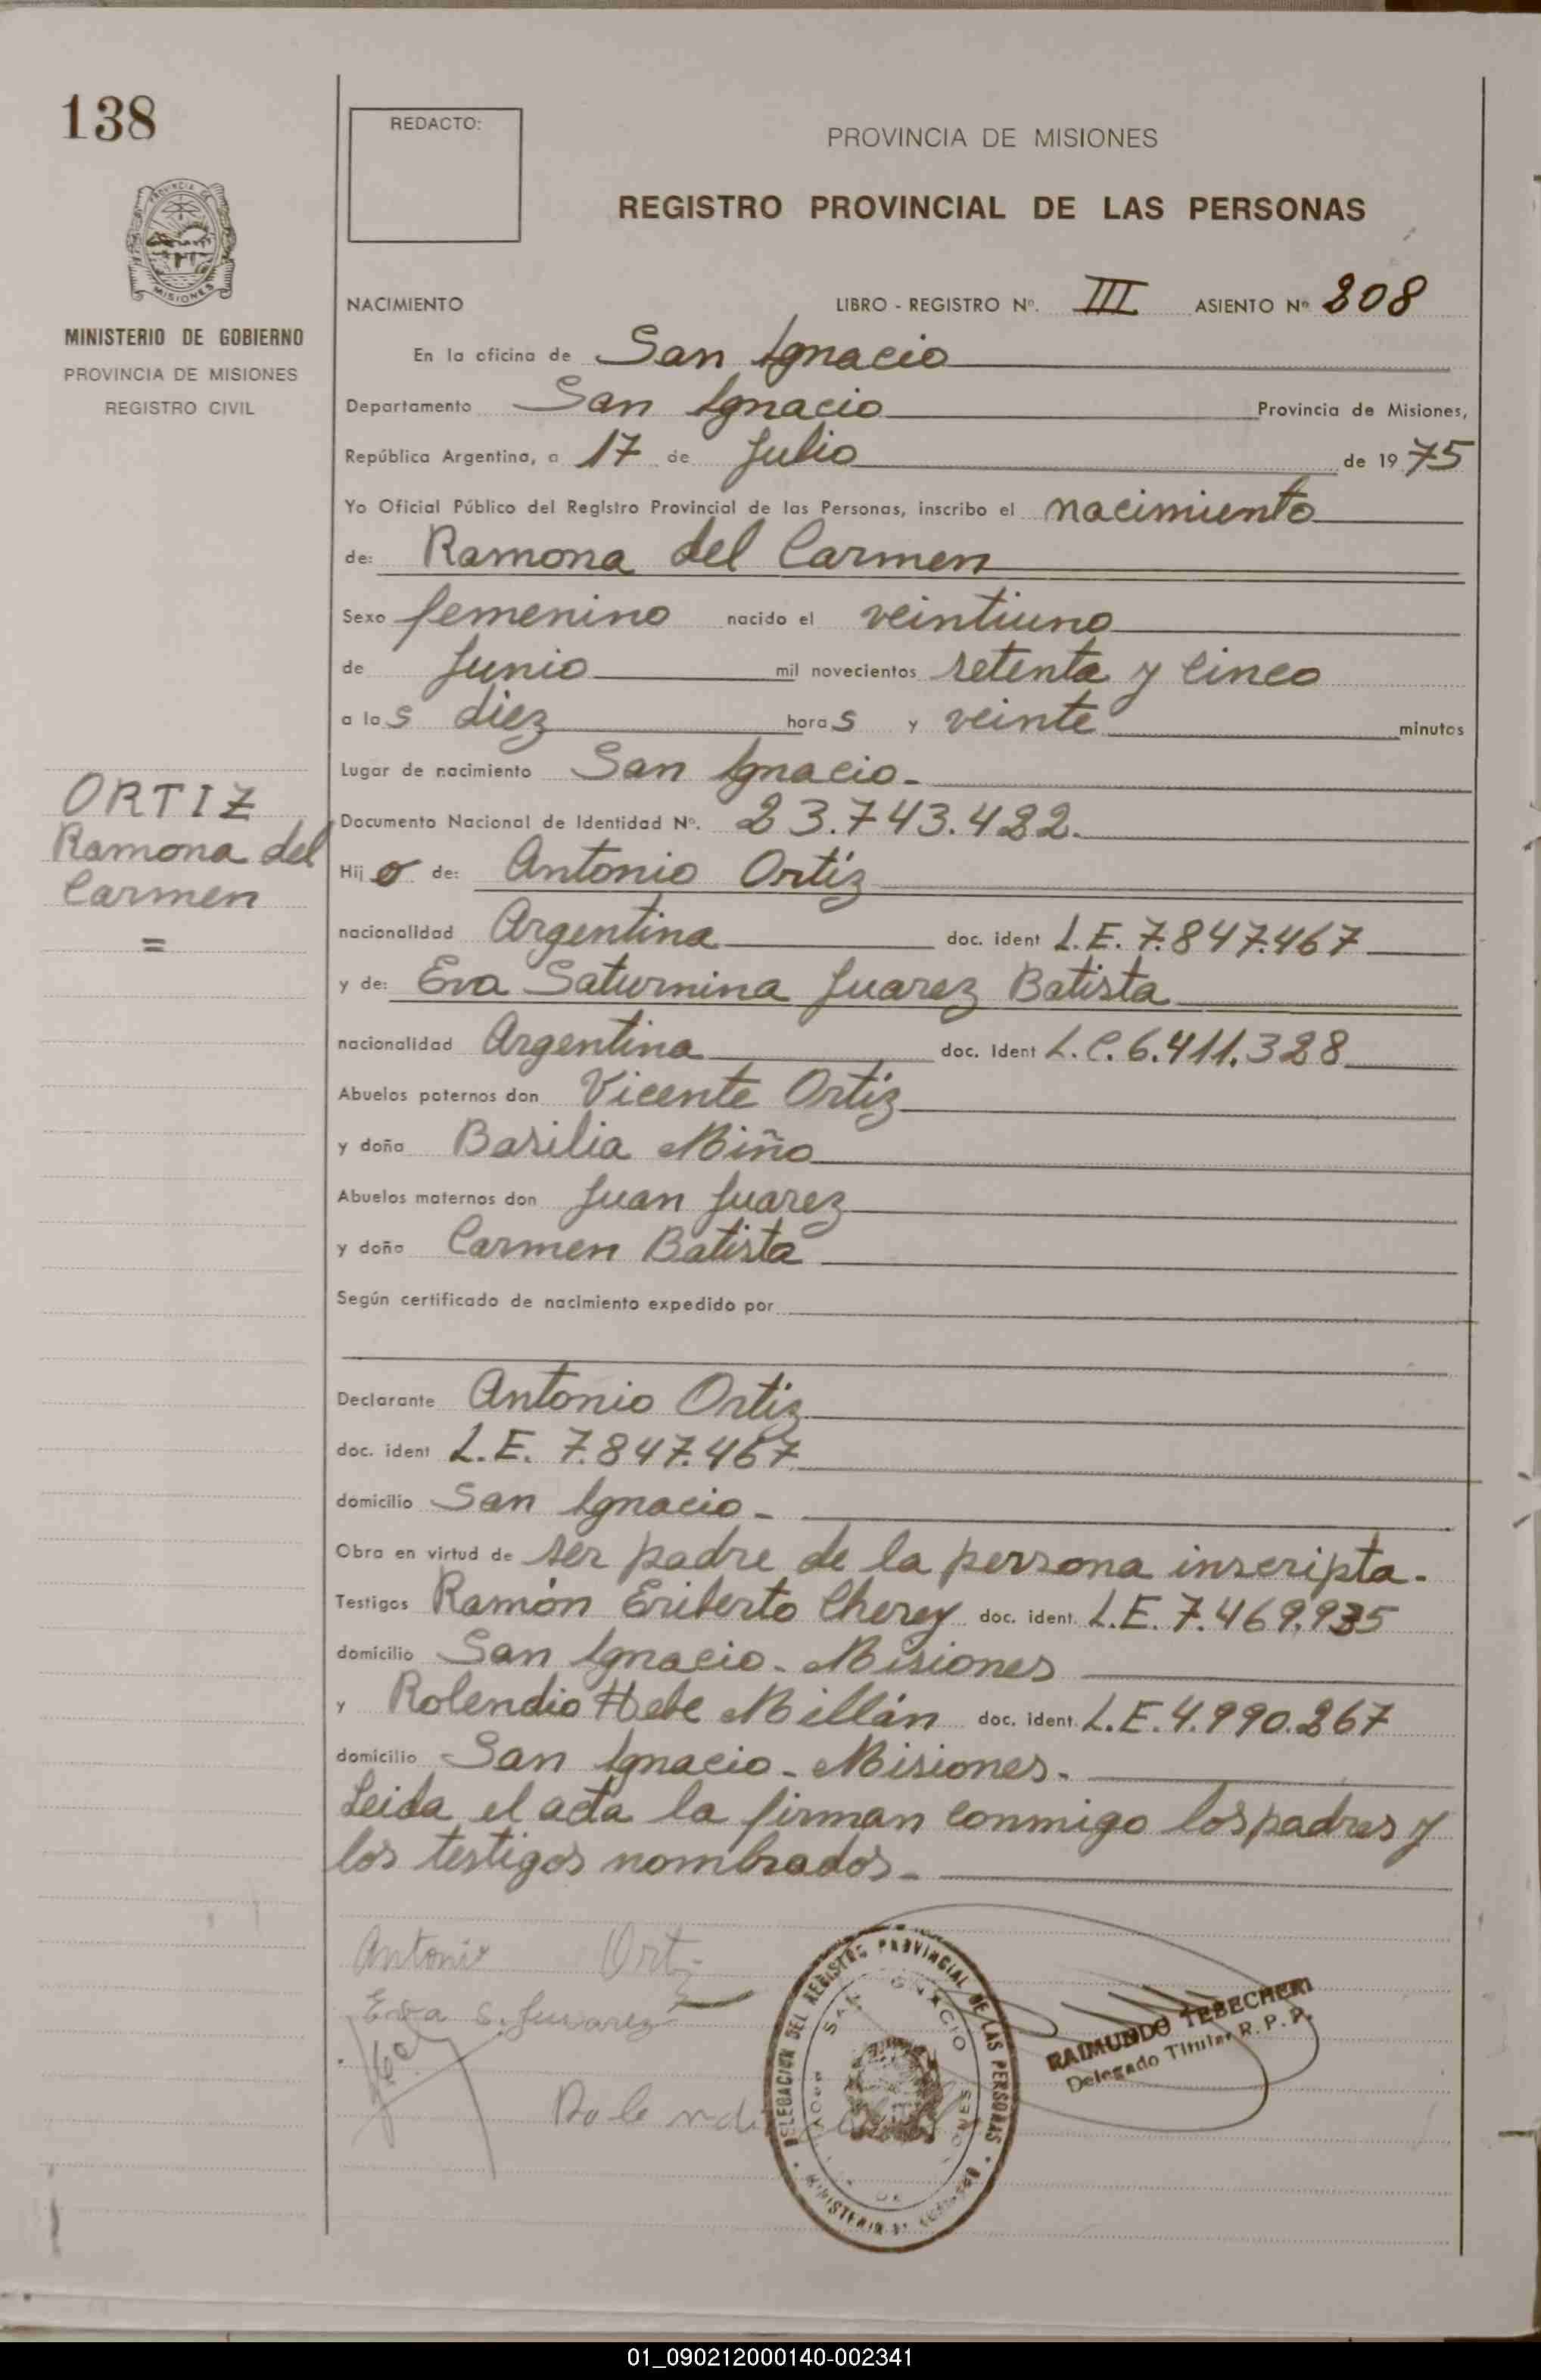 138
REDACTO:
PROVINCIA DE MISIONES
REGISTRO PROVINCIAL DE LAS PERSONAS
MISIONES
MINISTERIO DE GOBIERNO
PROVINCIA DE MISIONES
REGISTRO CIVIL
NACIMIENTO LIBRO - REGISTRO Nº. III ASIENTO Nº 208
En la oficina de San Ignacio
Departamento San Ignacio Provincia de Misiones,
República Argentina, a 17 de Julio de 1975
Yo Oficial Público del Registro Provincial de las Personas, inscribo el nacimiento
de: Ramona del Carmen
Sexo femenino nacido el veintiuno
de Junio mil novecientos setenta y cinco
a las diez horas y veinte minutos
Lugar de nacimiento San Ignacio-
ORTIZ
Ramona del
Carmen
=
Documento Nacional de Identidad Nº. 23.743.422.
Hijo de: Antonio Ortíz
nacionalidad Argentina doc. ident L.E. 7.847.467
y de: Eva Saturnina Juarez Batista
nacionalidad Argentina doc. Ident L.C. 6.411.328
Abuelos paternos don Vicente Ortíz
y doña Basilia Miño
Abuelos maternos don Juan Juarez
y doña Carmen Batista
Según certificado de nacimiento expedido por
Declarante Antonio Ortiz
doc. ident L.E. 7.847.467
domicilio San Ignacio-
Obra en virtud de ser padre de la persona inscripta.
Testigos Ramón Eriberto Cherey doc. ident. L.E. 7.469.935
domicilio San Ignacio- Misiones
y Rolendio Hebe Millán doc. ident. L.E. 4.990.267
domicilio San Ignacio- Misiones-
Leida el acta la firman conmigo los padres y
los testigos nombrados-
Antonio Ortiz
Eva S. Juvarez
DELEGACION DEL REGISTRO PROVINCIAL DE LAS PERSONAS
SAN IGNACIO
RAIMUNDO TEBECHERI
Delegado Titular R. P. P.
01_090212000140-002341